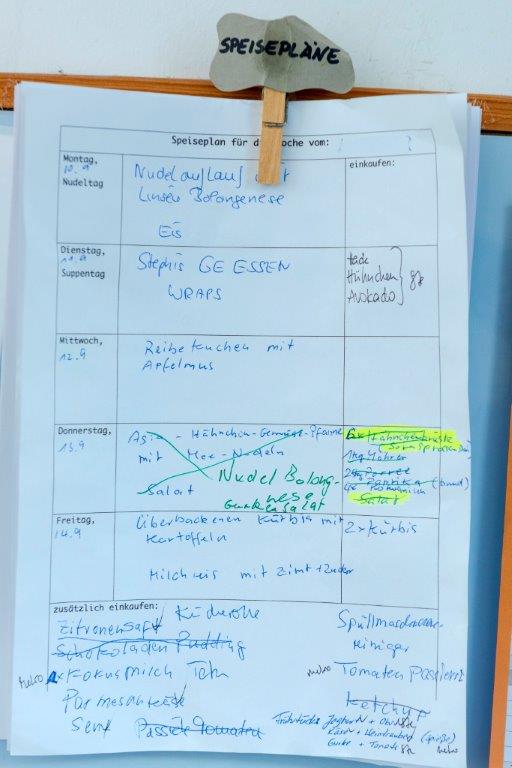 SPEISEPLÄNE
Speiseplan für die Woche vom:
Montag, 10.9
Nudeltag
Nudelauflauf mit
Linsen Bolongenese
Eis
einkaufen:
Dienstag, 11.9
Suppentag
Stephis GE ESSEN
WRAPS
Hühnchen
Avokado
Mittwoch,
12.9
Reibekuchen mit
Apfelmus
Donnerstag,
13.9
Asia - Hähnchen-Gemüse-Pfanne
mit Mee-Nudeln
Salat
Nudel Bolong-
nese
Gurkensalat
1kg Möhren
Porree
Paprika (bunt)
Kokosmilch
Salat
Freitag,
14.9
überbackenen Kürbis mit
Kartoffeln
Milchreis mit Zimt + Zucker
2x Kürbis
zusätzlich einkaufen:
Küchenrolle
Zitronensaft
Schokoladen Pudding
Kokusmilch
Parmesankäse
Senf
Passierte Tomaten
Spülmaschinen
reiniger
Metro Tomaten Passiert
Ketchup
Käse + Weintrauben (spieße)
Gurke + Tomate